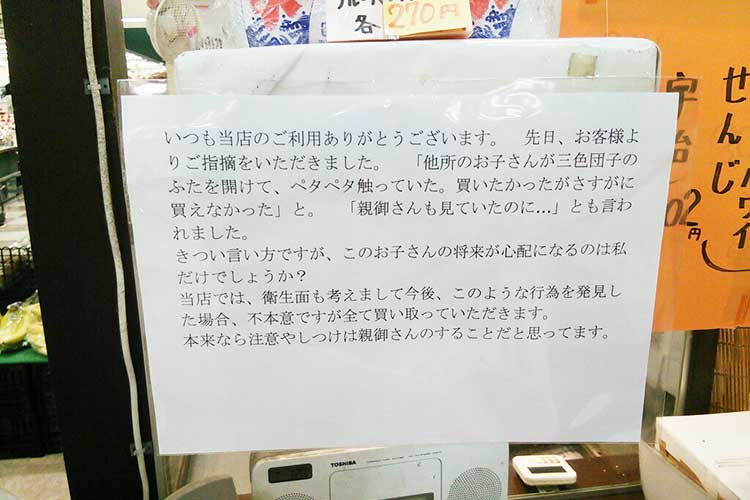 各
270円
いつも当店のご利用ありがとうございます。　先日、お客様よ
りご指摘をいただきました。　「他所のお子さんが三色団子の
ふたを開けて、ペタペタ触っていた。買いたかったがさすがに
買えなかった」と。　「親御さんも見ていたのに…」とも言わ
れました。
きつい言い方ですが、このお子さんの将来が心配になるのは私
だけでしょうか？
当店では、衛生面も考えまして今後、このような行為を発見し
た場合、不本意ですが全て買い取っていただきます。
本来なら注意やしつけは親御さんのすることだと思ってます。
せんじ
ハワイ
宇治
円
TOSHIBA